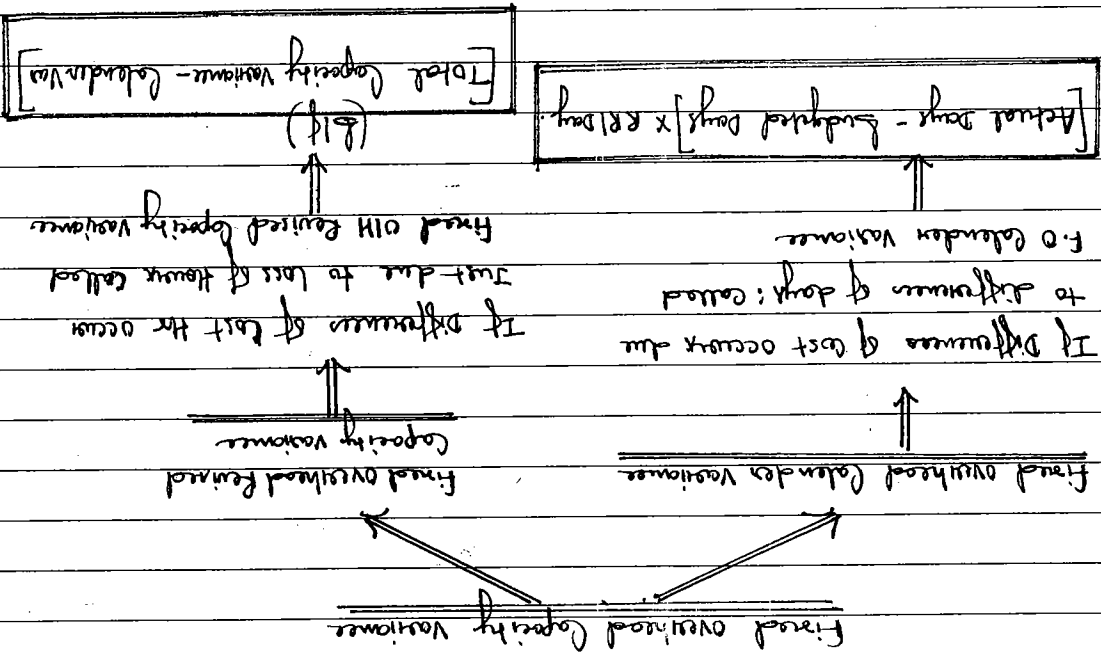 Fixed overhead Capacity Variance
Fixed overhead Calender Variance
If Differences of cost occurs due
to differences of days: called
F.O Calender Variance
[Actual Days - Budgeted Days] x RR/Day.
Fixed overhead Revised
Capacity Variance
If Differences of Cost Hr occur
Just due to loss of Hours called
Fixed O/H Revised Capacity Variance
(b/f)
[Total Capacity Variance - Calender Var]